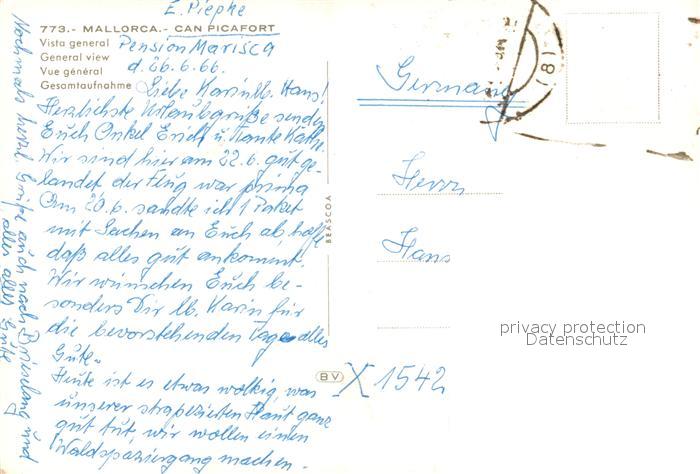 E. Piepke
773.- MALLORCA.- CAN PICAFORT
Vista general
General view
Vue général
Gesamtaufnahme
Pension Marisca
d. 26.6.66.
Liebe Karin lb. Hans!
Herzlichste Urlaubsgrüße senden
Euch Onkel Erich u. Tante Käthe.
Wir sind hier am 22.6. gut ge-
landet der Flug war prima
Am 20.6. sandte ich 1 Paket
mit Sachen an Euch ab hoffe
daß alles gut ankommt.
Wir wünschen Euch be-
sonders Dir lb. Karin für
die bevorstehenden Tage alles
Gute.
Heute ist es etwas wolkig, was
unserer strapezierten Haut ganz
gut tut, wir wollen einen
Waldspaziergang machen.
Nochmals herzl. Grüße auch nach und
alles alles Gute
BEASCOA
BV
X 1542
Germany
Herrn
Hans
(8)
privacy protection
Datenschutz